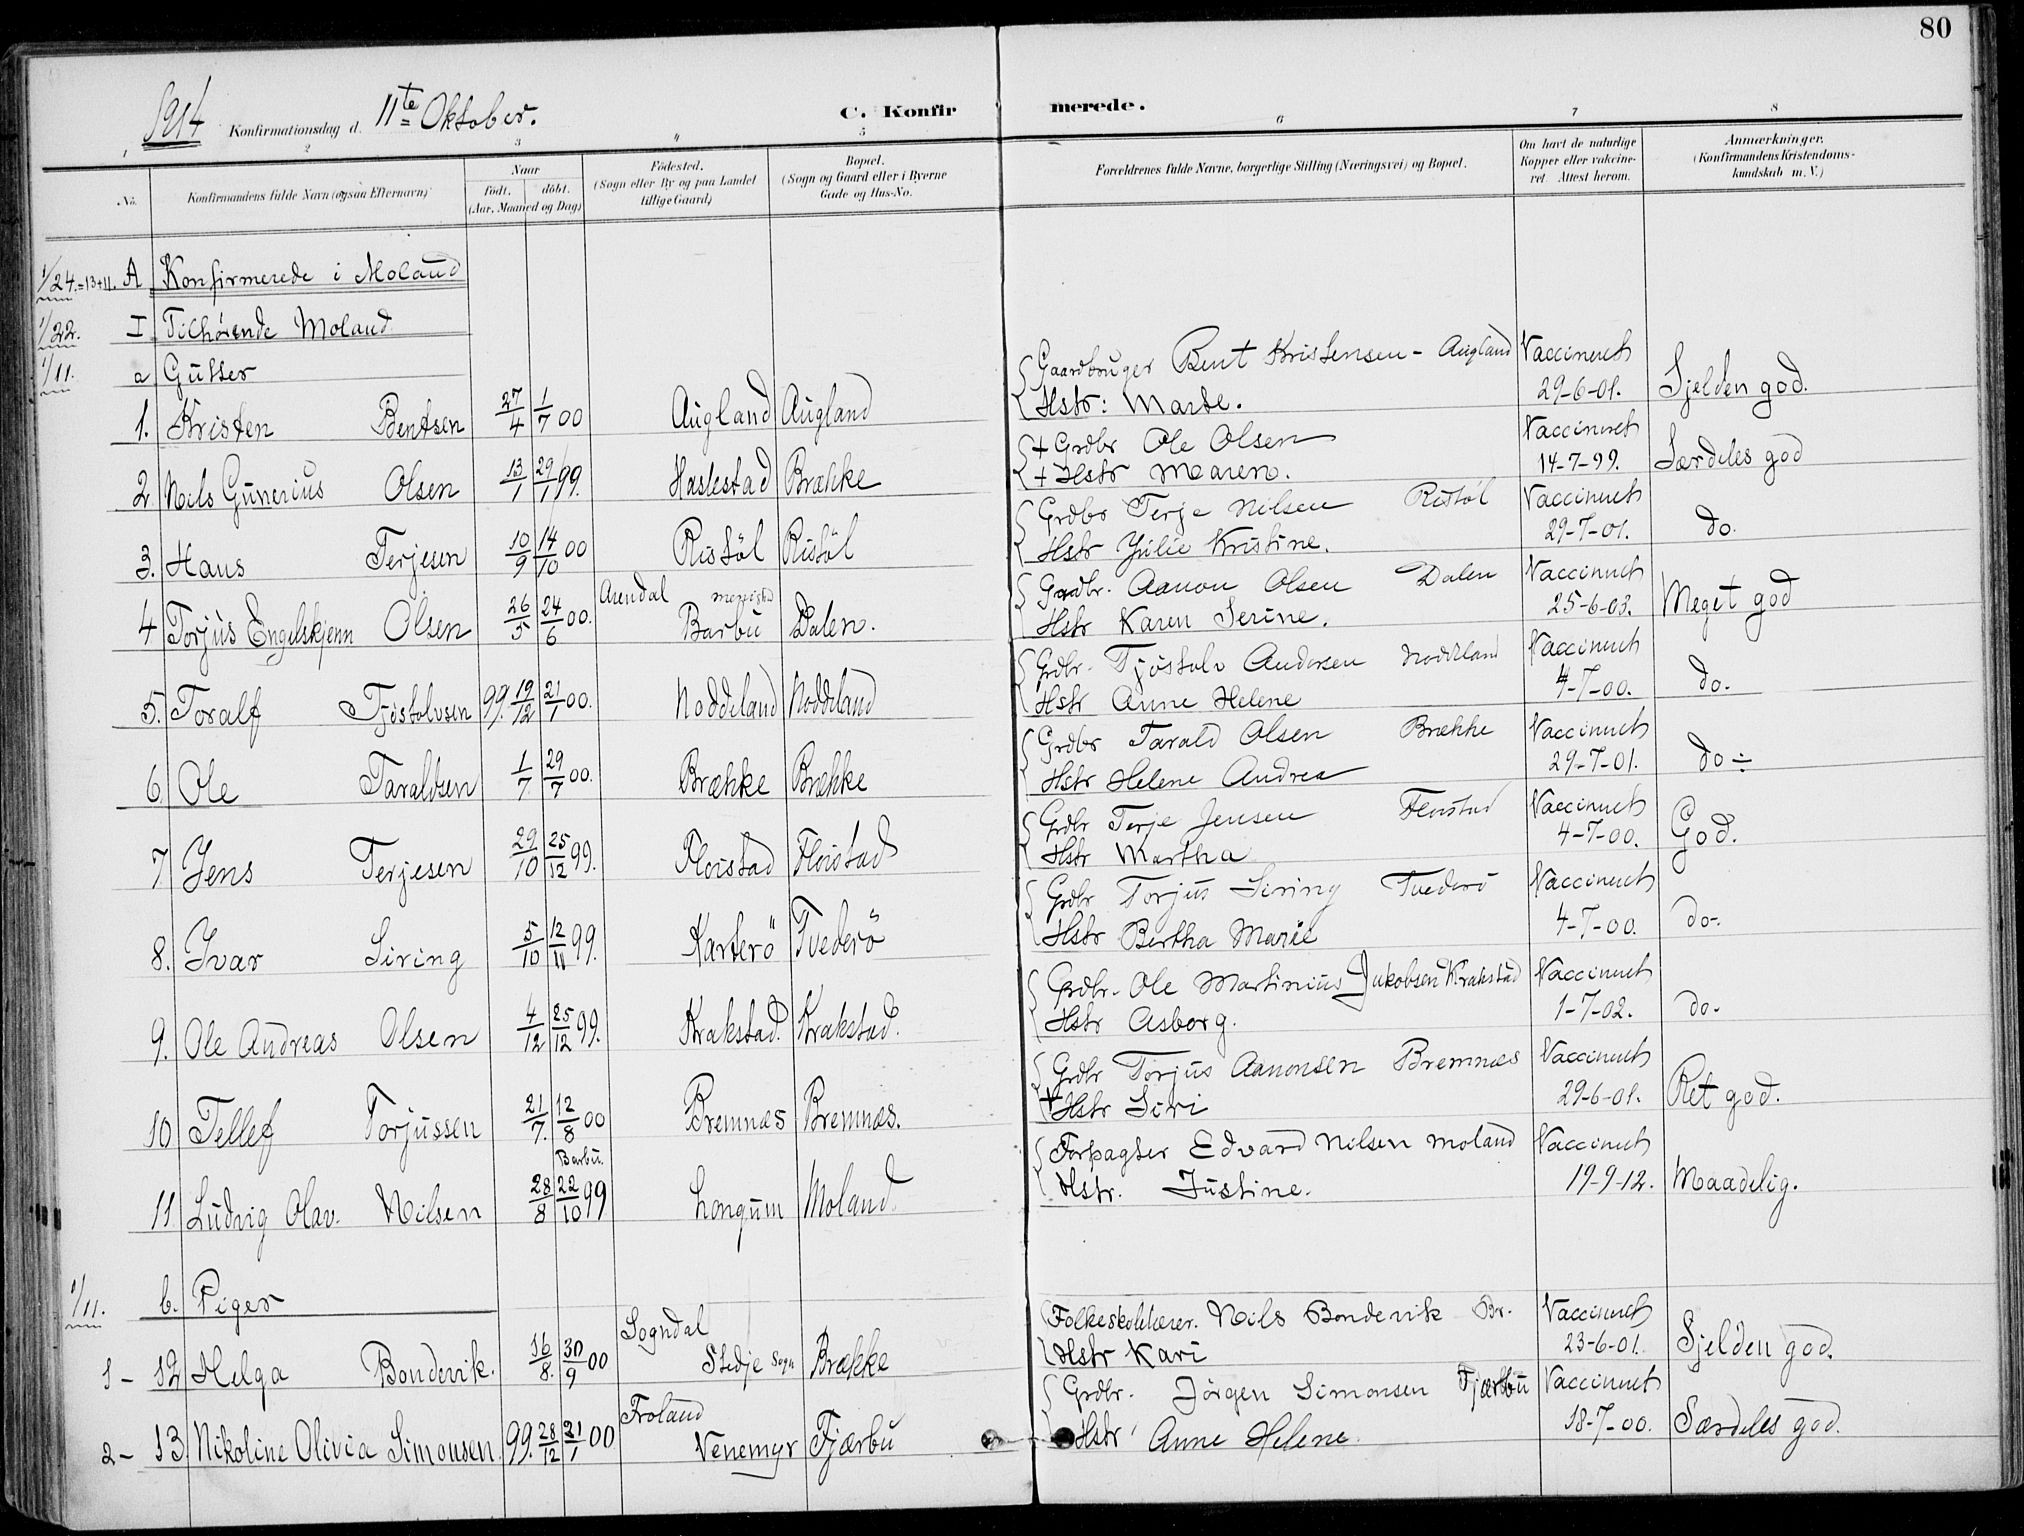 80
1914 Konfirmationsdag d. 11te Oktober. C. Konfir merede.
1 2 3 4 5 6 7 8
No. Konfirmandens fulde Navn (ogsaa Efternavn) Naar født. døbt. (Aar, Maaned og Dag) Fødested. (Sogn eller By og paa Landet tillige Gaard) Bopæl. (Sogn og Gaard eller i Byerne Gade og Hus-No. Forældrenes fulde Navne, borgerlige Stilling (Næringsvei) og Bopæl. Om havt de naturlige Kopper eller vakcineret. Attest herom. Anmærkninger. (Konfirmandens Kristendomskundskab m. V.)
1/24.=13+11. A Konfirmerede i Moland
1/22. I Tilhørende Moland
1/11. a Gutter
1. Kristen Bentsen 27/4 1/7 00 Augland Augland Gaardbruger Bent Kristensen - Augland Vaccineret
Hstr: Marte. 29-6-01. Sjelden god.
2 Nils Gunerius Olsen 13/1 29/1 99. Haslestad Brække + Grdbr Ole Olsen Vaccineret
+ Hstr Maren. 14-7-99. Særdeles god
3. Hans Terjesen 10/9 14/10 00 Ristøl Ristøl Grdbr Terje Nilsen Ristøl Vaccineret
Hstr Julie Kristine. 29-7-01. do.
4 Torjus Engelskjenn Olsen 26/5 24/6 00. Arendal Barbu Dalen. Grdbr. Aanon Olsen Dalen Vaccineret
Hstr Karen Serine. 25-6-03. Meget god
5. Toralf Tjøstolvsen 99. 19/12 21/1 00. Noddeland Noddeland Grdbr. Tjøstolv Andersen Noddeland Vaccineret
Hstr Anne Helene 4-7-00. do.
6 Ole Taraldsen 1/7 29/7 00. Brække Brække Grdbr Tarald Olsen Brække Vaccineret
Hstr Helene Andrea 29-7-01. do ÷
7 Jens Terjesen 29/10 25/12 99. Floistad Floistad Grdbr Terje Jensen Floistad Vaccineret
Hstr Martha 4-7-00. God.
8. Ivar Siring 5/10 12/11 99. Karterö Tvederö Grdbr Torjus Siring Tvederö Vaccineret
Hstr Bertha Marie 4-7-00. do.
9. Ole Andreas Olsen 4/12 25/12 99. Krakstad. Krakstad. Grdbr. Ole Martinius Jakobsen Krakstad Vaccineret
Hstr Asborg. 1-7-02. do.
10 Tellef Torjussen 21/7. 12/8 00 Bremnæs Bremnæs. Grdbr Torjus Aanonsen Bremnæs Vaccineret
+ Hstr Siri 29-6-01. Ret god.
11 Ludvig Olav. Nilsen 28/8 Barbu. 22/10 99 Longum Moland. Forpagter Edvard Nilsen Moland Vaccineret
Hstr. Justine. 19-9-12. Maadelig.
1/11. b. Piger
1- 12 Helga Bondevik. 16/8. 30/9 00 Sogndal Stedje Sogn Brække Folkeskolelærer. Nils Bondevik Br. Vaccineret
Hstr Kari 23-6-01. Sjelden god.
2- 13. Nikoline Olivia Simonsen 99. 28/12 21/1 00 Froland Venemyr Fjærbu Grdbr. Jörgen Simonsen Fjærbu Vaccineret
Hstr Anne Helene 18-7-00. Særdeles god.